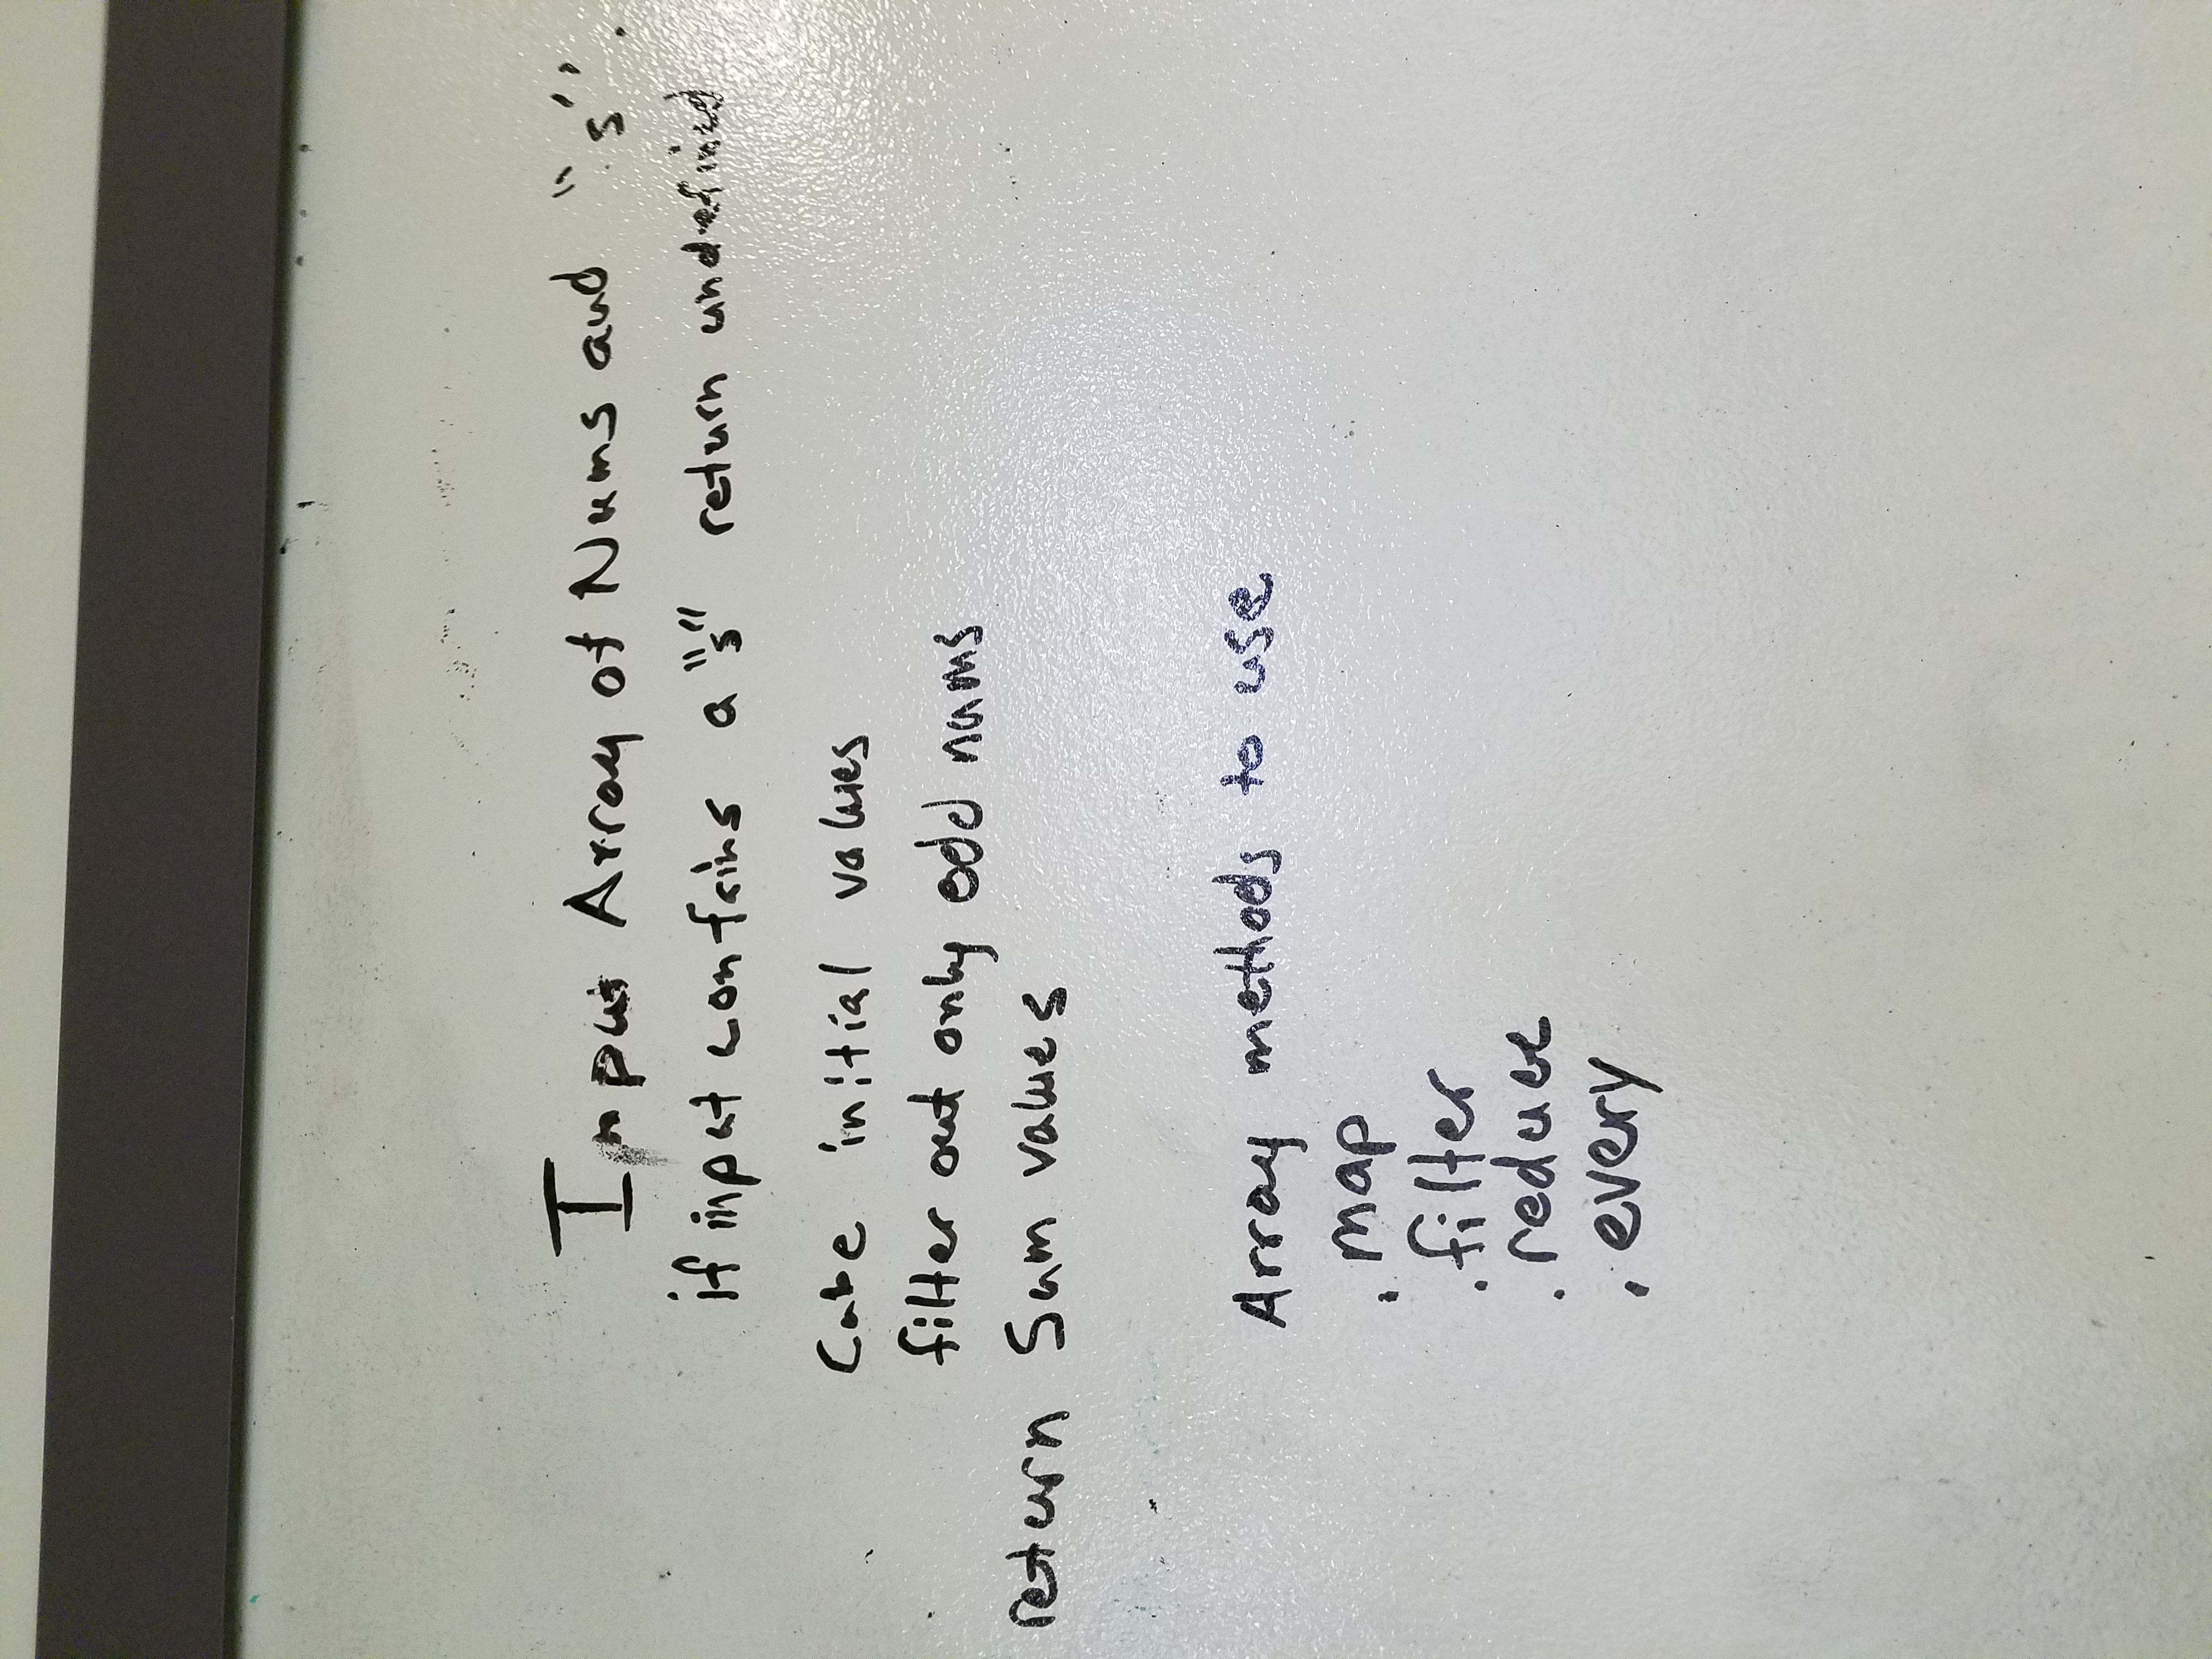 Input Array of Nums and "s".
if input contains a "s" return undefined
Cube initial values
filter out only odd nums
return Sum values
Array methods to use
.map
.filter
.reduce
.every